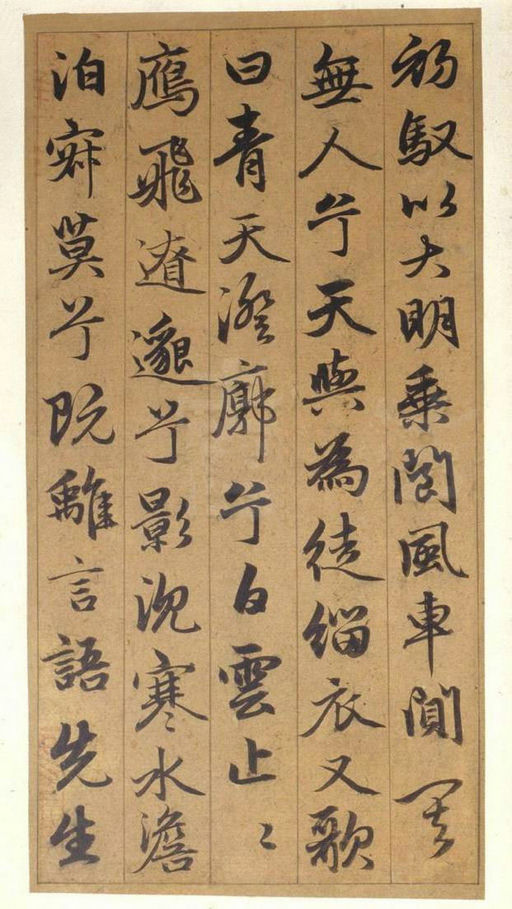 初馭以大明乘閬風車闃其
無人兮天與為徒緇衣又歌
曰青天澄廓兮白雲止〻
鴈飛遼邈兮影沈寒水澹
泊寂莫兮既離言語先生